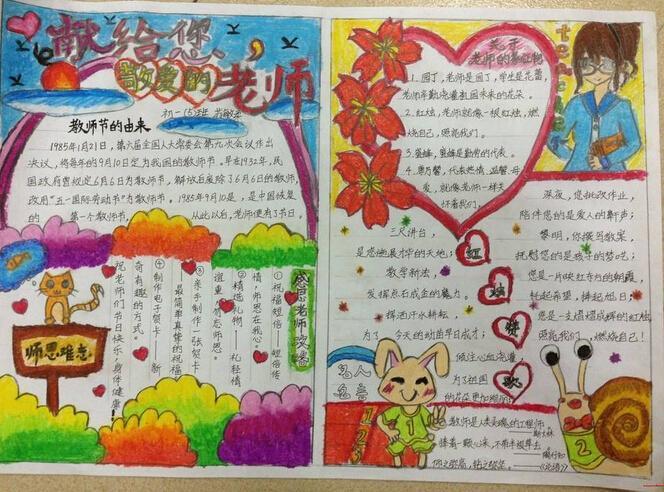 献给您,
敬爱的老师
初一(5)班
教师节的由来
1985年1月21日,第六届全国人大常委会第九次会议作出
决议,将每年的9月10日定为我国的教师节。早在1932年,民
国政府曾规定6月6日为教师节,解放后废除了6月6日的教师节,
改用"五一国际劳动节"为教师节。1985年9月10是,是中国恢复
的 第一个教师节。 从此以后,老师便有了节日。
感恩老师
①祝福短信——短信传
情,师恩在我心。
②精选礼物——礼轻情
谊重,铭师恩。
③亲手制作一张贺卡
——最简单真挚的祝福
④制作电子贺卡——新
奇有趣的方式。
祝老师们节日快乐,身体健康
师恩难忘
关于
老师的
1.园丁,老师是园丁,学生是花蕾,
老师辛勤浇灌祖国未来的花朵。
2.红烛,老师就像一根红烛,燃
烧自己,照亮我们。
3.蜜蜂,蜜蜂是勤劳的代表。
4.康乃馨,代表热情,温馨,母
爱,就像老师一样关
怀着我们。
teacher
三尺讲台,
是您施展才华的天地;
教学新法,
发挥点石成金的魔力。
挥洒汗水耕耘,
为了 今天的幼苗早日成才;
倾注心血浇灌,
为了祖国
的花朵更加
红
烛
赞
歌
深夜,您批改作业,
陪伴您的是爱人的鼾声;
黎明,你撰写教案,
抚慰您的是孩子的梦呓;
您是一片映红东方的朝霞,
托起希望,捧起旭日;
您是一支熠熠成辉的红烛
照亮我们,燃烧自己!
名人
名言
1
2
3
教师是人类灵魂的工程师
斯大林
捧着一颗心来,不带半根草去
陶行知
仰之弥高,钻之弥坚
《论语》
1
2